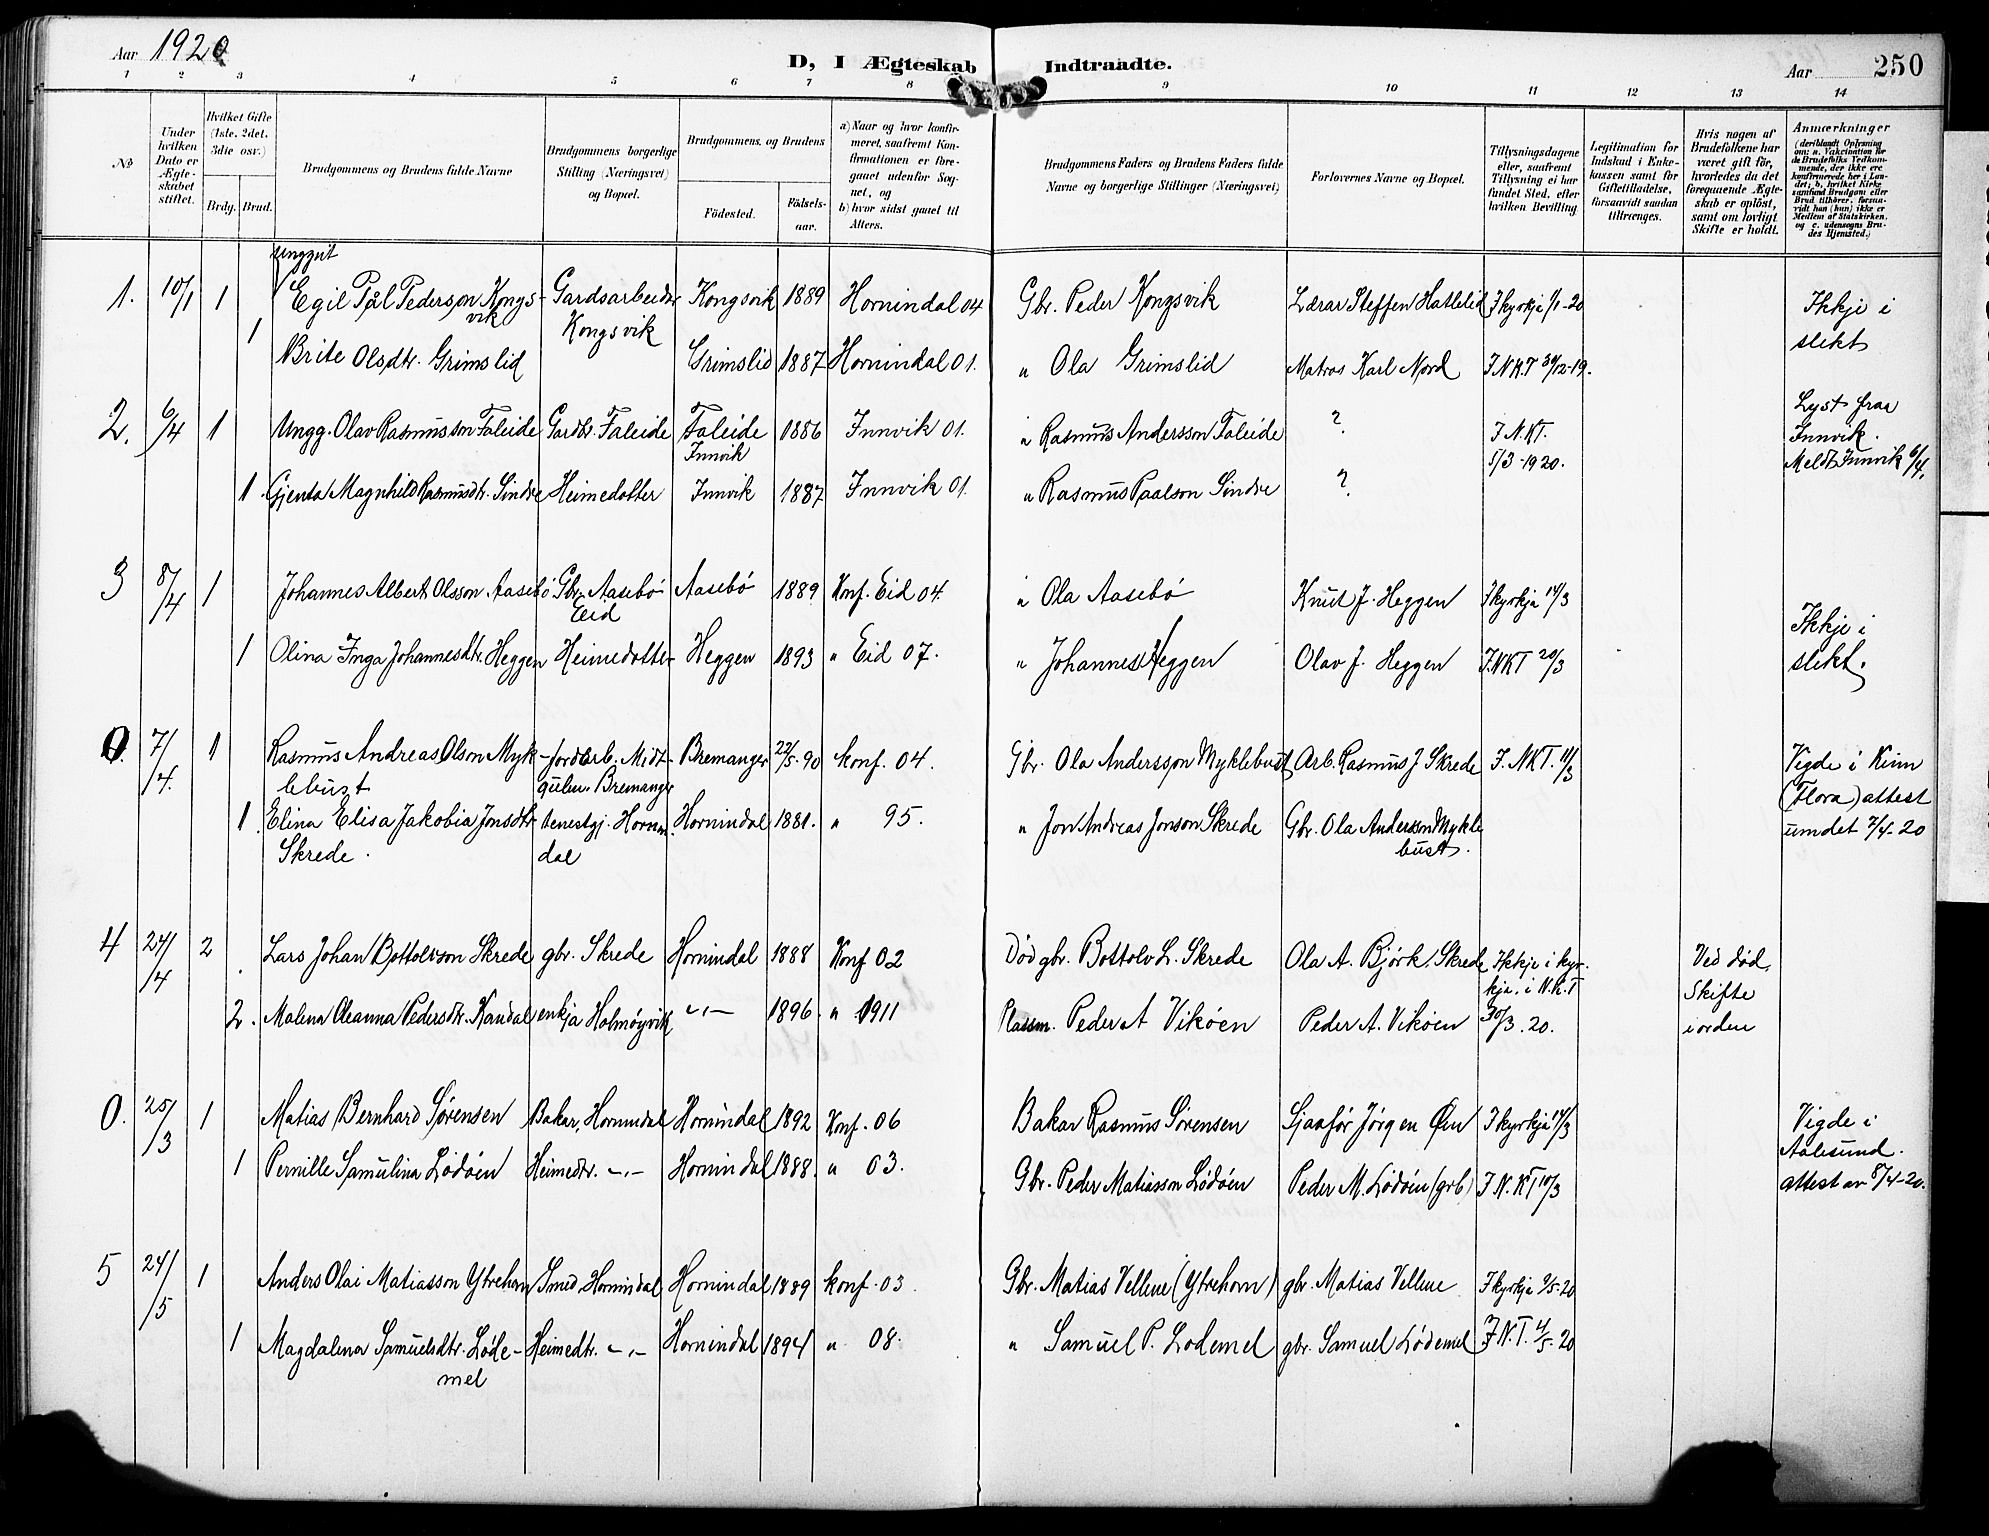 Aar 1920
D, I Ægteskab Indtraadte.
Aar 250
1 2 3 4 5 6 7 8 9 10 11 12 13 14
No
Under hvilken Dato er Ægteskabet stiftet.
Hvilket Gifte (1ste, 2det, 3die osv.)
Brdg. Brud.
Brudgommens og Brudens fulde Navne
Brudgommens borgerlige Stilling (Næringsvei) og Bopæl.
Brudgommens og Brudens
Födested.
Födselsaar.
a) Naar og hvor konfirmeret, saafremt Konfirmationen er foregaaet udenfor Sognet, og
b) hvor sidst gaaet til Alters.
Brudgommens Faders og Brudens Faders fulde Navne og borgerlige Stillinger (Næringsvei)
Forlovernes Navne og Bopæl.
Tillysningsdagene eller, saafremt Tillysning ei har fundet Sted, efter hvilken Bevilling
Legitimation for Indskud i Enkekassen samt for Giftetilladelse, forsaavidt saadan tiltrænges.
Hvis nogen af Brudefolkene har været gift för, hvorledes da det foregaaende Ægteskab er oplöst, samt om lovligt Skifte er holdt.
Anmærkninger (deriblandt Oplysning om: a. Vakcination for de Brudefolks Vedkommende, der ikke ere konfirmerede her i Landet; b. hvilket Kirkesamfund Brudgom eller Brud tilhörer, forsaavidt han (hun) ikke er Medlem af Statskirken, og c. udensogns Brudes Hjemsted.)
Unggut
1. 10/1 1 Egil Pål Pederson Kongsvik Gardsarbeider Kongsvik Kongsvik 1889 Hornindal 04 Gbr. Peder Kongsvik Lærar Steffen Hatlelid I kyrkja 1/1-20 Ikkje i slekt
1 Brite Olsdtr. Grimslid Grimslid 1887 Hornindal 01. " Ola Grimslid Matros Karl Nord I N.K.T 30/12-19.
2. 6/4 1 Ungg. Olav Rasmusson Faleide Gardbr. Faleide Faleide Innvik 1886 Innvik 01. " Rasmus Andersson Faleide ? I N.KT. 5/3-1920. Lyst fraa Innvik. Meldt Innvik 6/4.
1. Gjenta Magnhild Rasmusdtr. Sindre Heimedotter Innvik 1887 Innvik 01. " Rasmus Paalson Sindre ?
3 8/4 1 Johannes Albert Olsson Aasebö Gbr. Aasebö Eid Aasebö 1889 Konf. Eid 04. " Ola Aasebö Knut J. Heggen I kyrkja 14/3
1 Olina Inga Johannesdtr. Heggen Heimedotter Heggen 1893 " Eid 07. " Johannes Heggen Olav J. Heggen I.NKT 20/3 Ikkje i slekt.
0. 7/4. 1 Rasmus Andreas Olson Myklebust jordarb. Midtgulen Bremanger Bremanger 22/5-90 konf. 04. Gbr. Ola Andersson Myklebust Arb. Rasmus J Skrede I. NKT. 11/3 Vigde i Kinn (Flora) attest umdet 7/4-20
1. Elina Elisa Jakobia Jonsdtr Skrede. tenestgj. Hornindal Hornindal 1881. " 95. " Jon Andreas Jonson Skrede Gbr. Ola Andersson Myklebust.
4 24/4 2 Lars Johan Bottolvson Skrede gbr. Skrede Hornindal 1888 Konf 02 Död gbr. Bottolv L. Skrede Ola A. Björk. Skrede Ikkje i kyrkja. i N.K.T 30/3.20. Ved död. Skifte i orden
2. Malena Oleanna Pedersdtr. Kandal enkja Holmöyvik -"- 1896. " 1911 Plassm. Peder A Viköen Peder A. Viköen
0. 25/3 1 Matias Bernhard Sørensen Bakar, Hornindal Hornindal 1892 Konf. 06 Bakar Rasmus Sørensen Sjaafør Jørgen Øen I kyrkja 14/3 Vigde i Aalesund. attest av 8/4-20.
1 Pernille Samulina Lödöen Heimedtr. -"- Hornindal 1888. " 03. Gbr. Peder Matiasson Lödöen Peder M. Lödöen (grb) I N.KT 10/3
5 24/5 1 Anders Olai Matiasson Ytrehorn Smed Hornindal Hornindal 1889 konf. 03. Gbr. Matias Vellene (Ytrehorn) gbr. Matias Vellene I kyrkja 9/5-20
1 Magdalena Samuelsdtr. Lødemel Heimedtr. -"- Hornindal 1894 " 08. " Samuel P. Lødemel gbr. Samuel Lødemel I N.T. 4/5-20